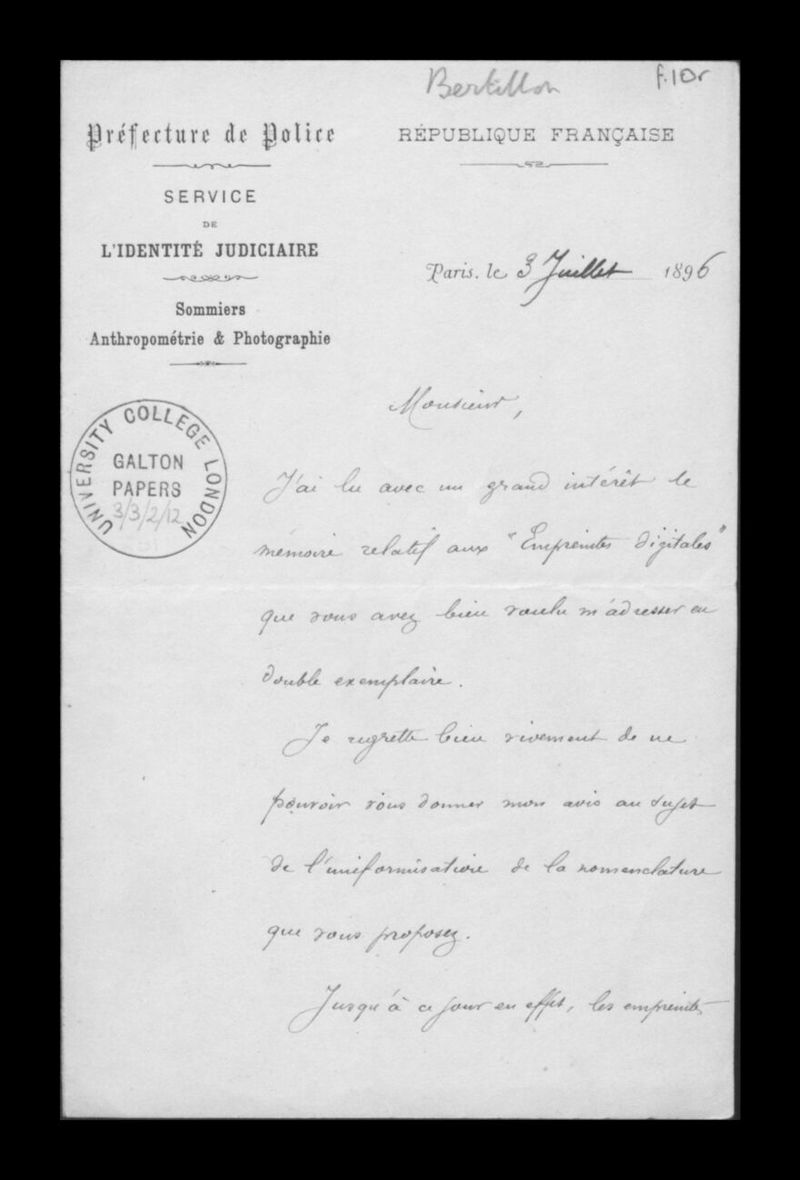 Bertillon
f.10r
Préfecture de Police
RÉPUBLIQUE FRANÇAISE
SERVICE
DE
L'IDENTITÉ JUDICIAIRE
Paris, le 3 Juillet 1896
Sommiers
Anthropométrie & Photographie
Monsieur,
UNIVERSITY COLLEGE LONDON
GALTON
PAPERS
3/3/2/12
J'ai lu avec un grand intérêt le
mémoire relatif aux "Empreintes digitales"
que vous avez bien voulu m'adresser en
double exemplaire.
Je regrette bien vivement de ne
pouvoir vous donner mon avis au sujet
de l'uniformisation de la nomenclature
que vous proposez.
Jusqu'à ce jour en effet, les empreintes